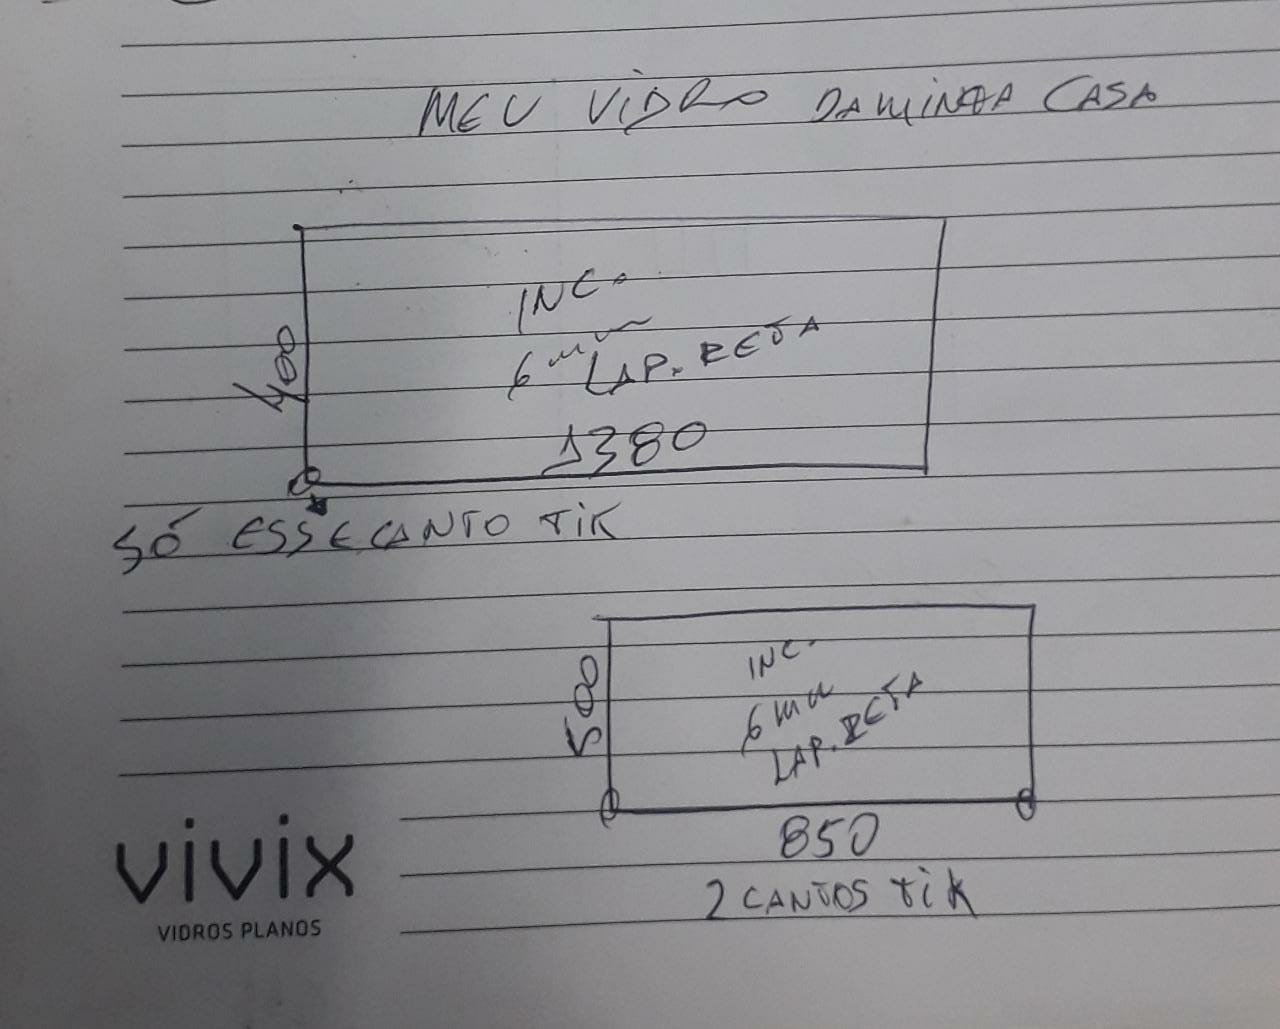 MEU VIDRO DA MINHA CASA
INC.
6mm LAP. RETA
400
1380
SÓ ESSE CANTO TIK
INC.
6mm
LAP. RETA
500
850
2 CANTOS TIK
vivix
VIDROS PLANOS